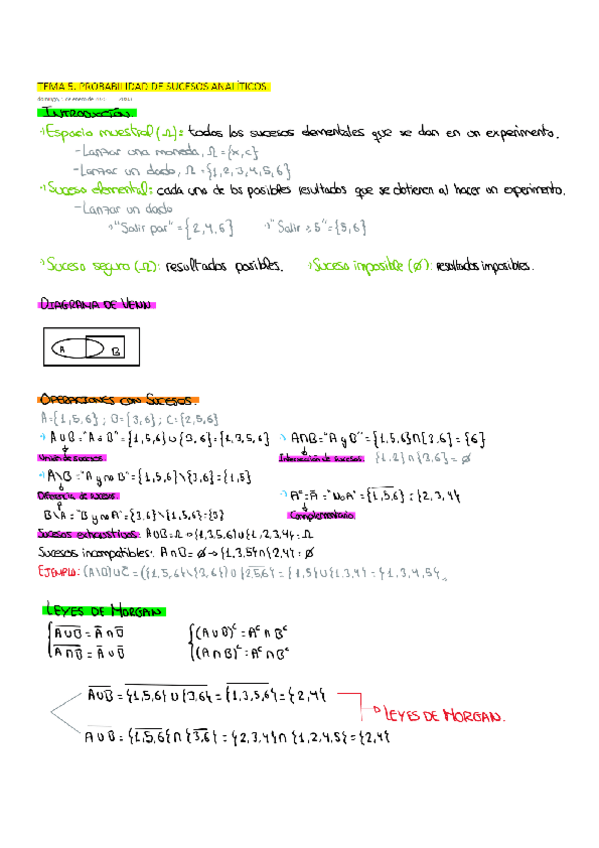 TEMA 5. PROBABILIDAD DE SUCESOS ANALÍTICOS
domingo, de enero de
INTRODUCCIÓN
Espacio muestral (Ω): todos los sucesos elementales que se dan en un experimento.
- Lanzar una moneda, Ω = {x, c}
- Lanzar un dado, Ω = {1, 2, 3, 4, 5, 6}
Suceso elemental: cada uno de los posibles resultados que se obtienen al hacer un experimento.
- Lanzar un dado
"Salir par" = {2, 4, 6} "Salir ≥ 5" = {5, 6}
Suceso seguro (Ω): resultados posibles. Suceso imposible (Ø): resultados imposibles.
DIAGRAMA DE VENN
A B
OPERACIONES CON SUCESOS.
A = {1, 5, 6} ; B = {3, 6} ; C = {2, 5, 6}
A∪B = "A o B" = {1, 5, 6} ∪ {3, 6} = {1, 3, 5, 6} A∩B = "A y B" = {1, 5, 6} ∩ {3, 6} = {6}
Unión de sucesos Intersección de sucesos {1, 2} ∩ {3, 6} = Ø
A\B = "A y no B" = {1, 5, 6} \ {3, 6} = {1, 5}
Diferencia de sucesos Aᶜ = A̅ = "No A" = {1, 5, 6} = {2, 3, 4}
B\A = "B y no A" = {3, 6} \ {1, 5, 6} = {3} Complementario
Sucesos exhaustivos: A∪B = Ω → {1, 3, 5, 6} ∪ {1, 2, 3, 4} = Ω
Sucesos incompatibles: A∩B = Ø → {1, 3, 5} ∩ {2, 4} = Ø
EJEMPLO: (A\B) ∪ C̅ = ({1, 5, 6} \ {3, 6}) ∪ {2, 5, 6} = {1, 5} ∪ {1, 3, 4} = {1, 3, 4, 5}
LEYES DE MORGAN
A∪B = A̅ ∩ B̅ (A∪B)ᶜ = Aᶜ ∩ Bᶜ
A∩B = A̅ ∪ B̅ (A∩B)ᶜ = Aᶜ ∩ Bᶜ
A∪B = {1, 5, 6} ∪ {3, 6} = {1, 3, 5, 6} = {2, 4}
LEYES DE MORGAN.
A∪B = {1, 5, 6} ∩ {3, 6} = {2, 3, 4} ∩ {1, 2, 4, 5} = {2, 4}